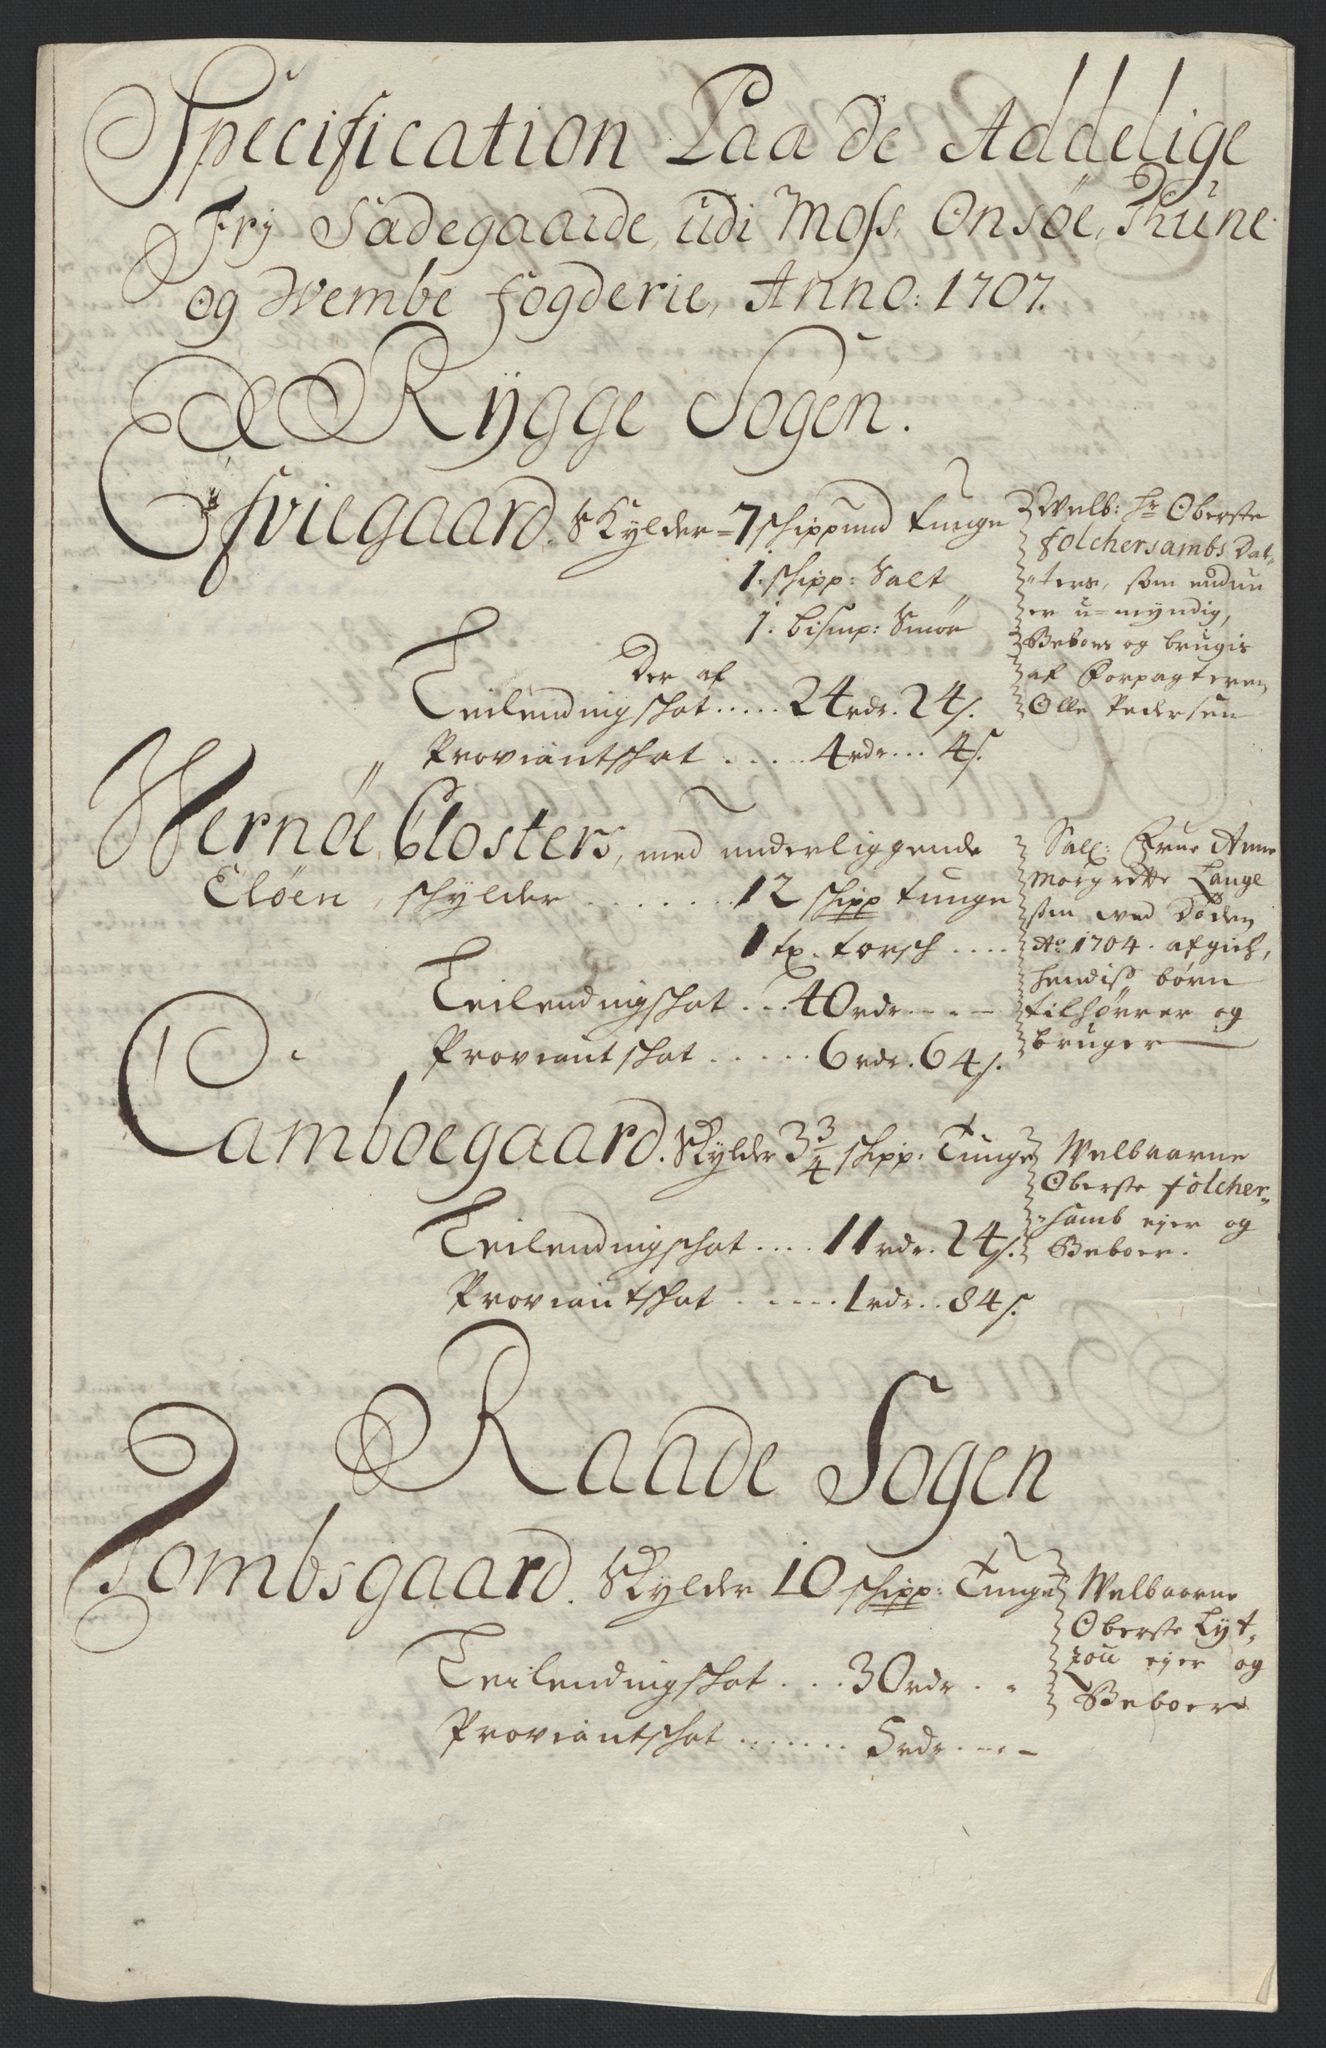 Specification Paa de Addelige
Frij Sædegaarde, udi Moss, Onsøe, Thune
og Wembe fogderie, Anno: 1707.
Rÿgge Sogen.
Efvilegaard. Skylder = 7 schippund tunge
1. schipp: Salt
1. bismp: Smør
Der af
Leilendingschat ..... 24 rdr. 24 s.
Proviantschat ..... 4 rdr ... 4 s.
Welb: Hr Oberste
folchersambs Dat-
ters, som endnu
er u-myndig,
Beboes og brugis
af Forpagteren
Olle Pedersen
Wernøe Closters, med underliggende
Eløen, schylder ....... 12 schipp tunge
1 tx. torsch ....
Leilendingschat ... 40 rdr - - -
Proviantschat ..... 6 rdr. 64 s.
Sall: Frue Anne
Morgrette Lange
som ved Døden
Ao 1704. afgich,
hendiss børn
tilhørrer og
bruger
Camboegaard. Skylder 3 3/4 schipp: Tunge
Leilendingschat .... 11 rdr. 24 s.
Proviantschat ...... 1 rdr .. 84 s.
Welbaarne
Oberste folcher-
samb ejer og
Beboer.
Raade Sogen
Tombsgaard. Skylder 10 schipp: Tunge
Leilendingschat ... 30 rdr . -
Proviantschat ....... 5 rdr. - . -
Welbaarne
Oberste Lyt-
zou ejer og
Beboer